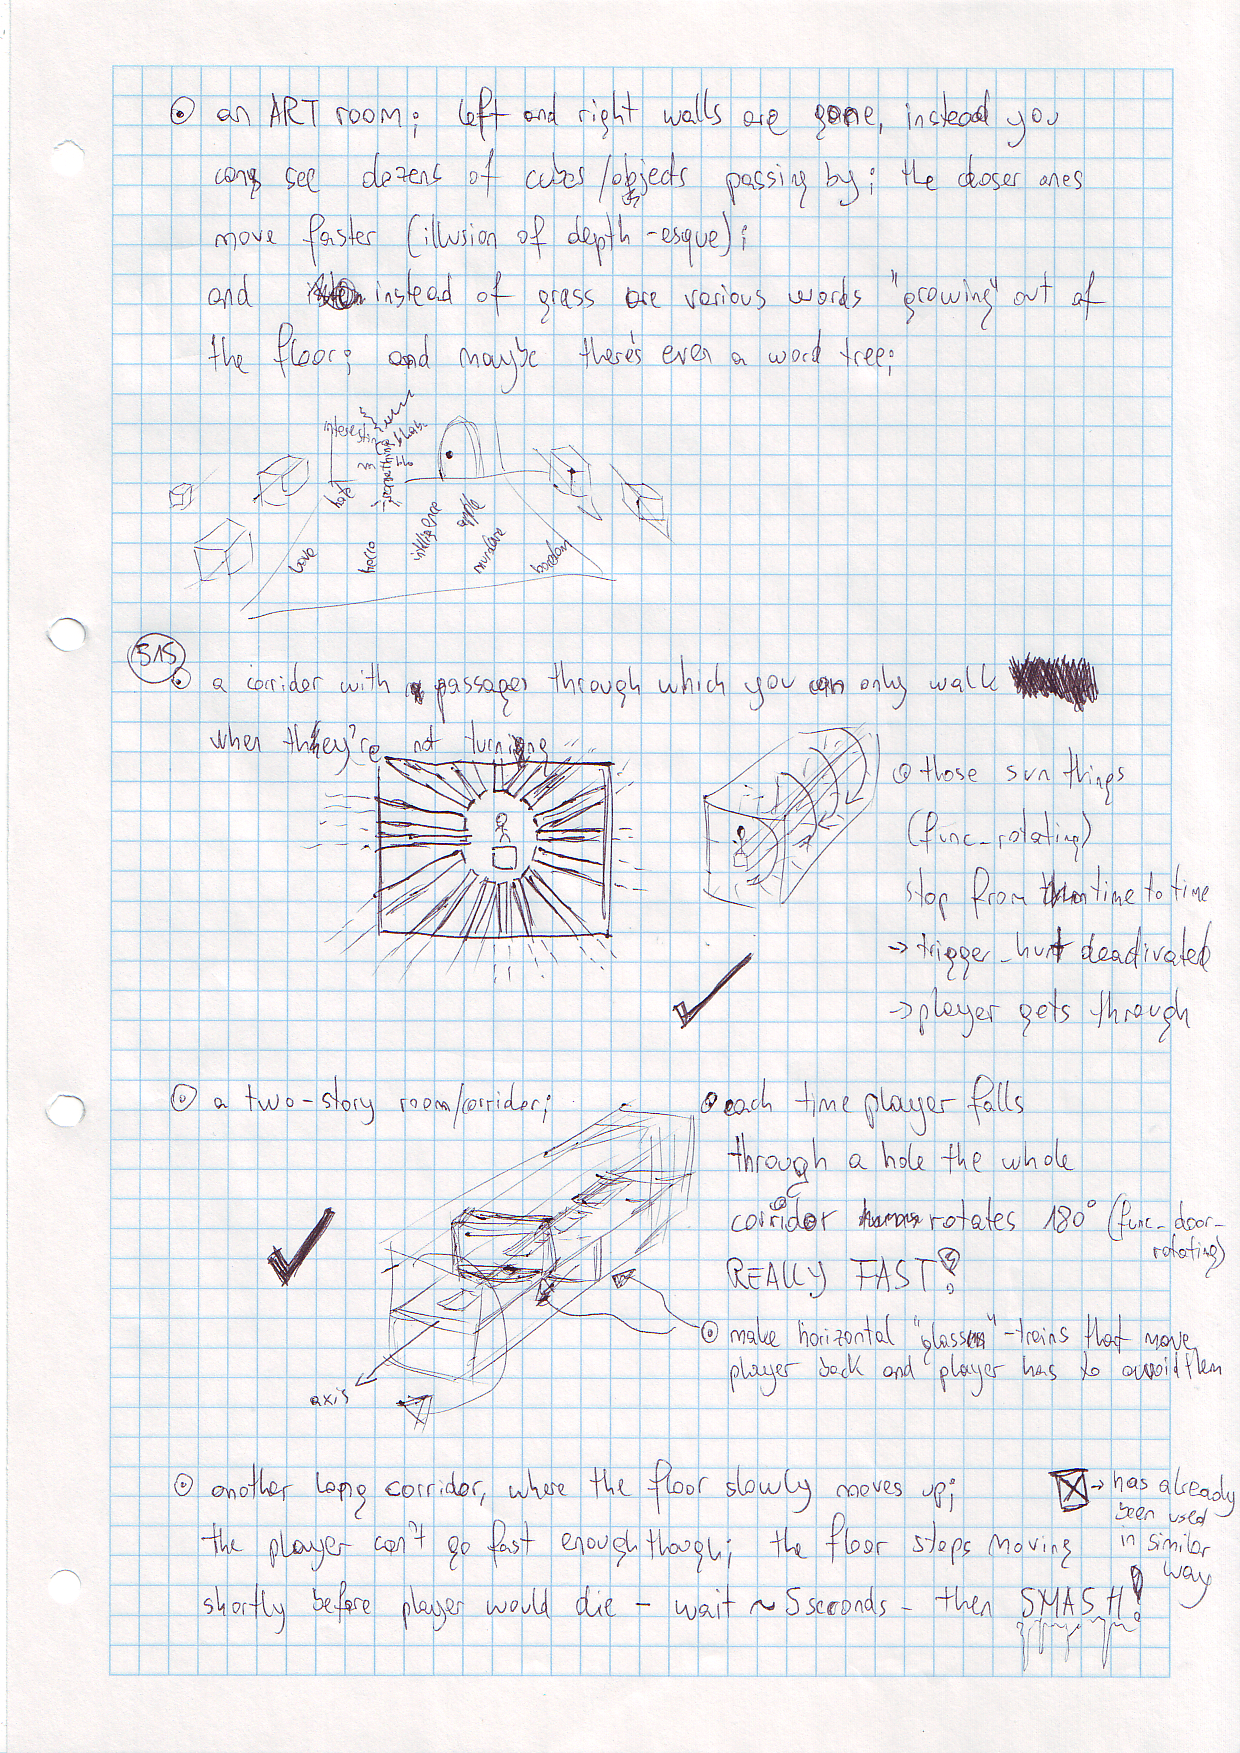 an ART room; left and right walls are gone, instead you
can see dozens of cubes/objects passing by; the closer ones
move faster (illusion of depth-esque);
and instead of grass are various words "growing" out of
the floor; and maybe there's even a word tree;
interesting
something
blo
hate
love
hello
intelligence
apple
murder
boredom
515
a corridor with passages through which you can only walk
when they're not turning
those sun things
(func_rotating)
stop from time to time
→ trigger_hurt deactivated
→ player gets through
a two-story room/corridor;
each time player falls
through a hole the whole
corridor rotates 180° (func_door_
rotating)
REALLY FAST!
make horizontal "glass"-trains that move
player back and player has to avoid them
axis
another long corridor, where the floor slowly moves up;
the player can't go fast enough though; the floor stops moving
shortly before player would die - wait ~5seconds - then SMASH!
→ has already
been used
in similar
way